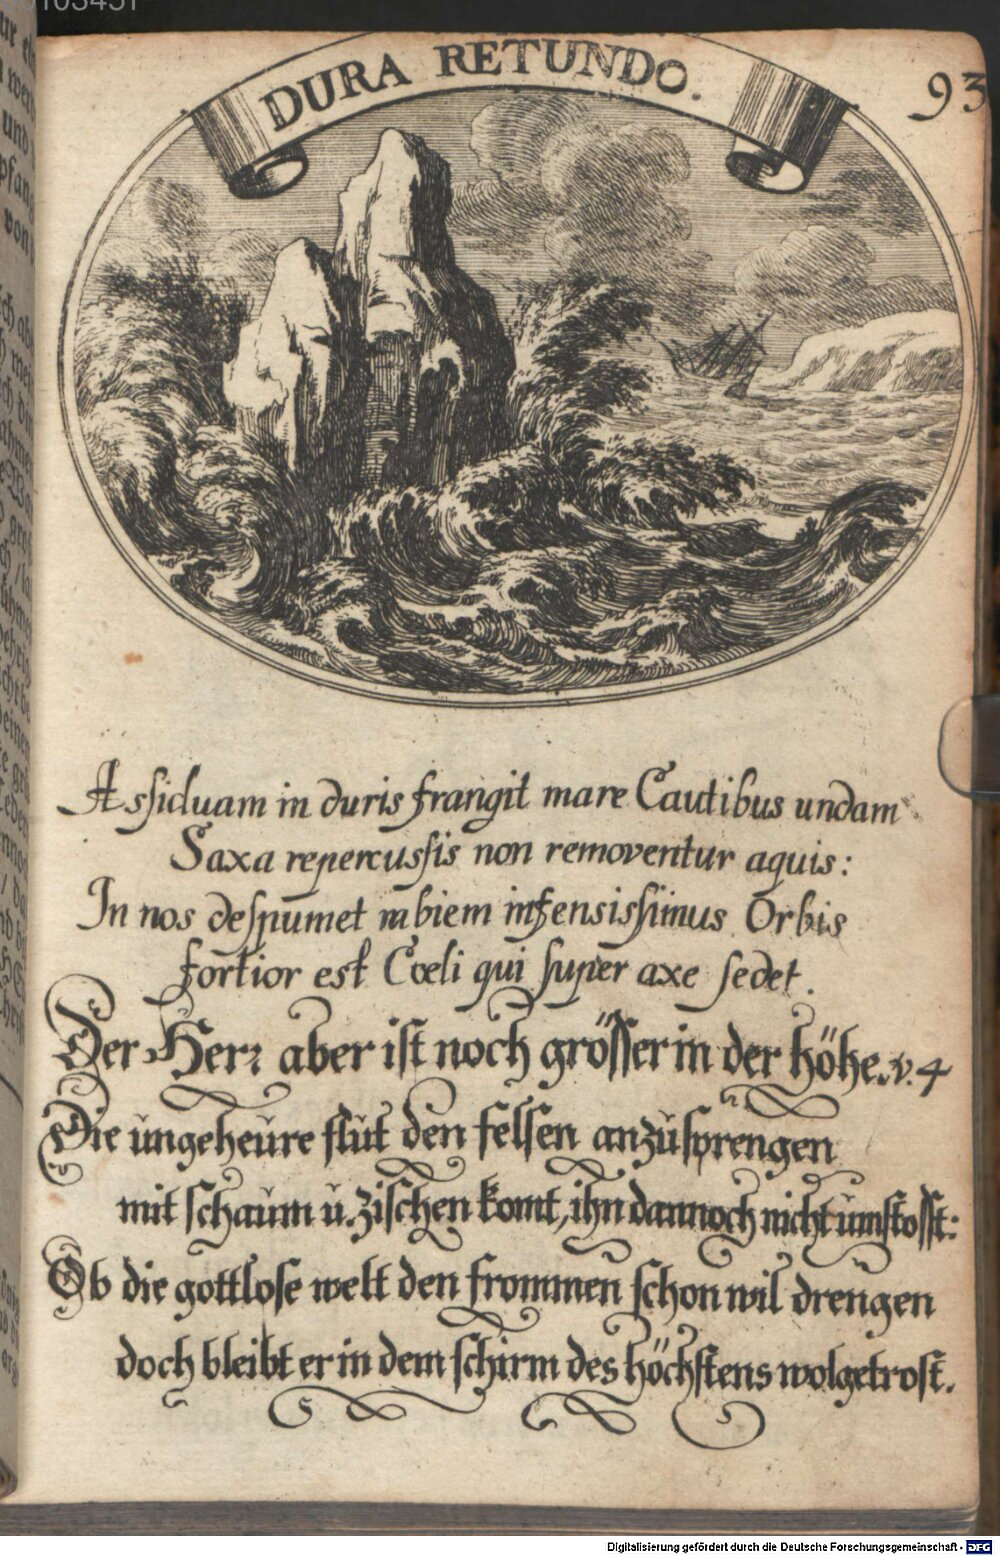 DURA RETUNDO.
93
Assiduam in duris frangit mare Cautibus undam
Saxa repercussis non removentur aquis:
In nos despumet rabiem infensissimus Orbis
fortior est Cœli qui super axe sedet.
Der Herr aber ist noch grösser in der höhe. v. 4
Die ungeheure flut den felsen anzusprengen
mit schaum u. zischen komt, ihn dannoch nicht umstosst:
Ob die gottlose welt den frommen schon wil drengen
doch bleibt er in dem schirm des höchstens wolgetrost.
Digitalisierung gefördert durch die Deutsche Forschungsgemeinschaft - DFG